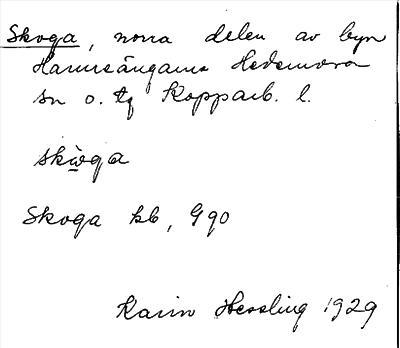 Skoga, norra delen av byn
Hamreängarna Hedemora
sn o. tg Kopparb. l.
skωga
Skoga kb, G 90
Karin Hessling 1929